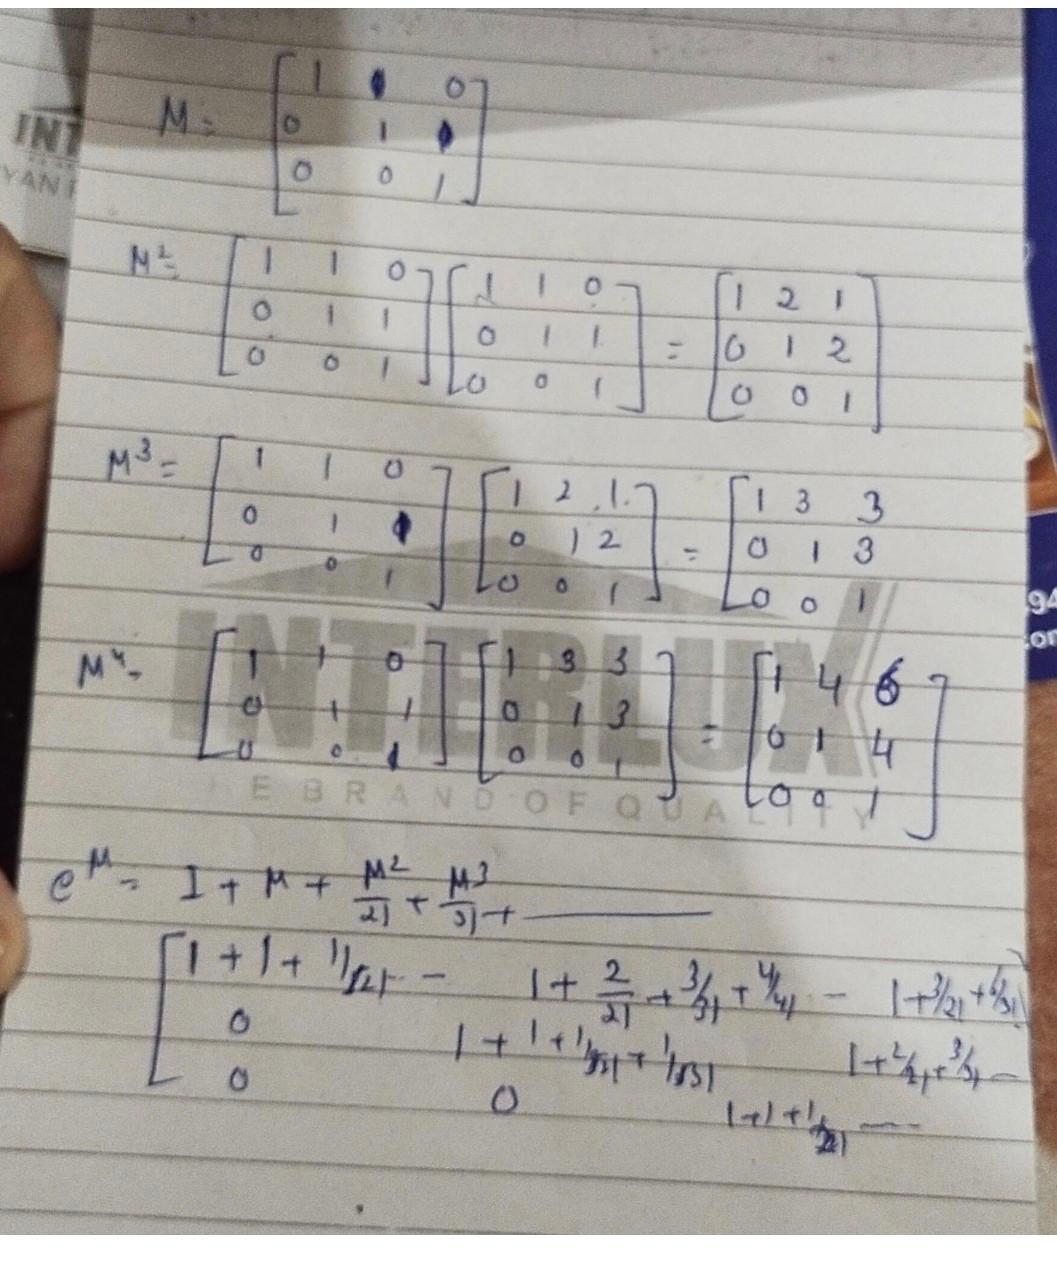 INT
YANT
M = [ 1 1 0
0 1 1
0 0 1 ]
M² = [ 1 1 0
0 1 1
0 0 1 ] [ 1 1 0
0 1 1
0 0 1 ] = [ 1 2 1
0 1 2
0 0 1 ]
M³ = [ 1 1 0
0 1 1
0 0 1 ] [ 1 2 1
0 1 2
0 0 1 ] = [ 1 3 3
0 1 3
0 0 1 ]
94
or
INTERLUX
M⁴ - [ 1 1 0
0 1 1
0 0 1 ] [ 1 3 3
0 1 3
0 0 1 ] = [ 1 4 6
0 1 4
0 0 1 ]
E BRAND OF QUALITY
e^M = I + M + M²/2! + M³/3! + ———
[ 1 + 1 + 1/2! - - 1 + 2/2! + 3/3! + 4/4! - 1 + 3/2! + 6/3!
0 1 + 1 + 1/2! + 1/3! 1 + 2/2! + 3/3! —
0 0 1 + 1 + 1/2! —